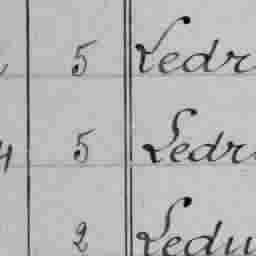 5 Ledr
4 5 Ledr
2 Ledu